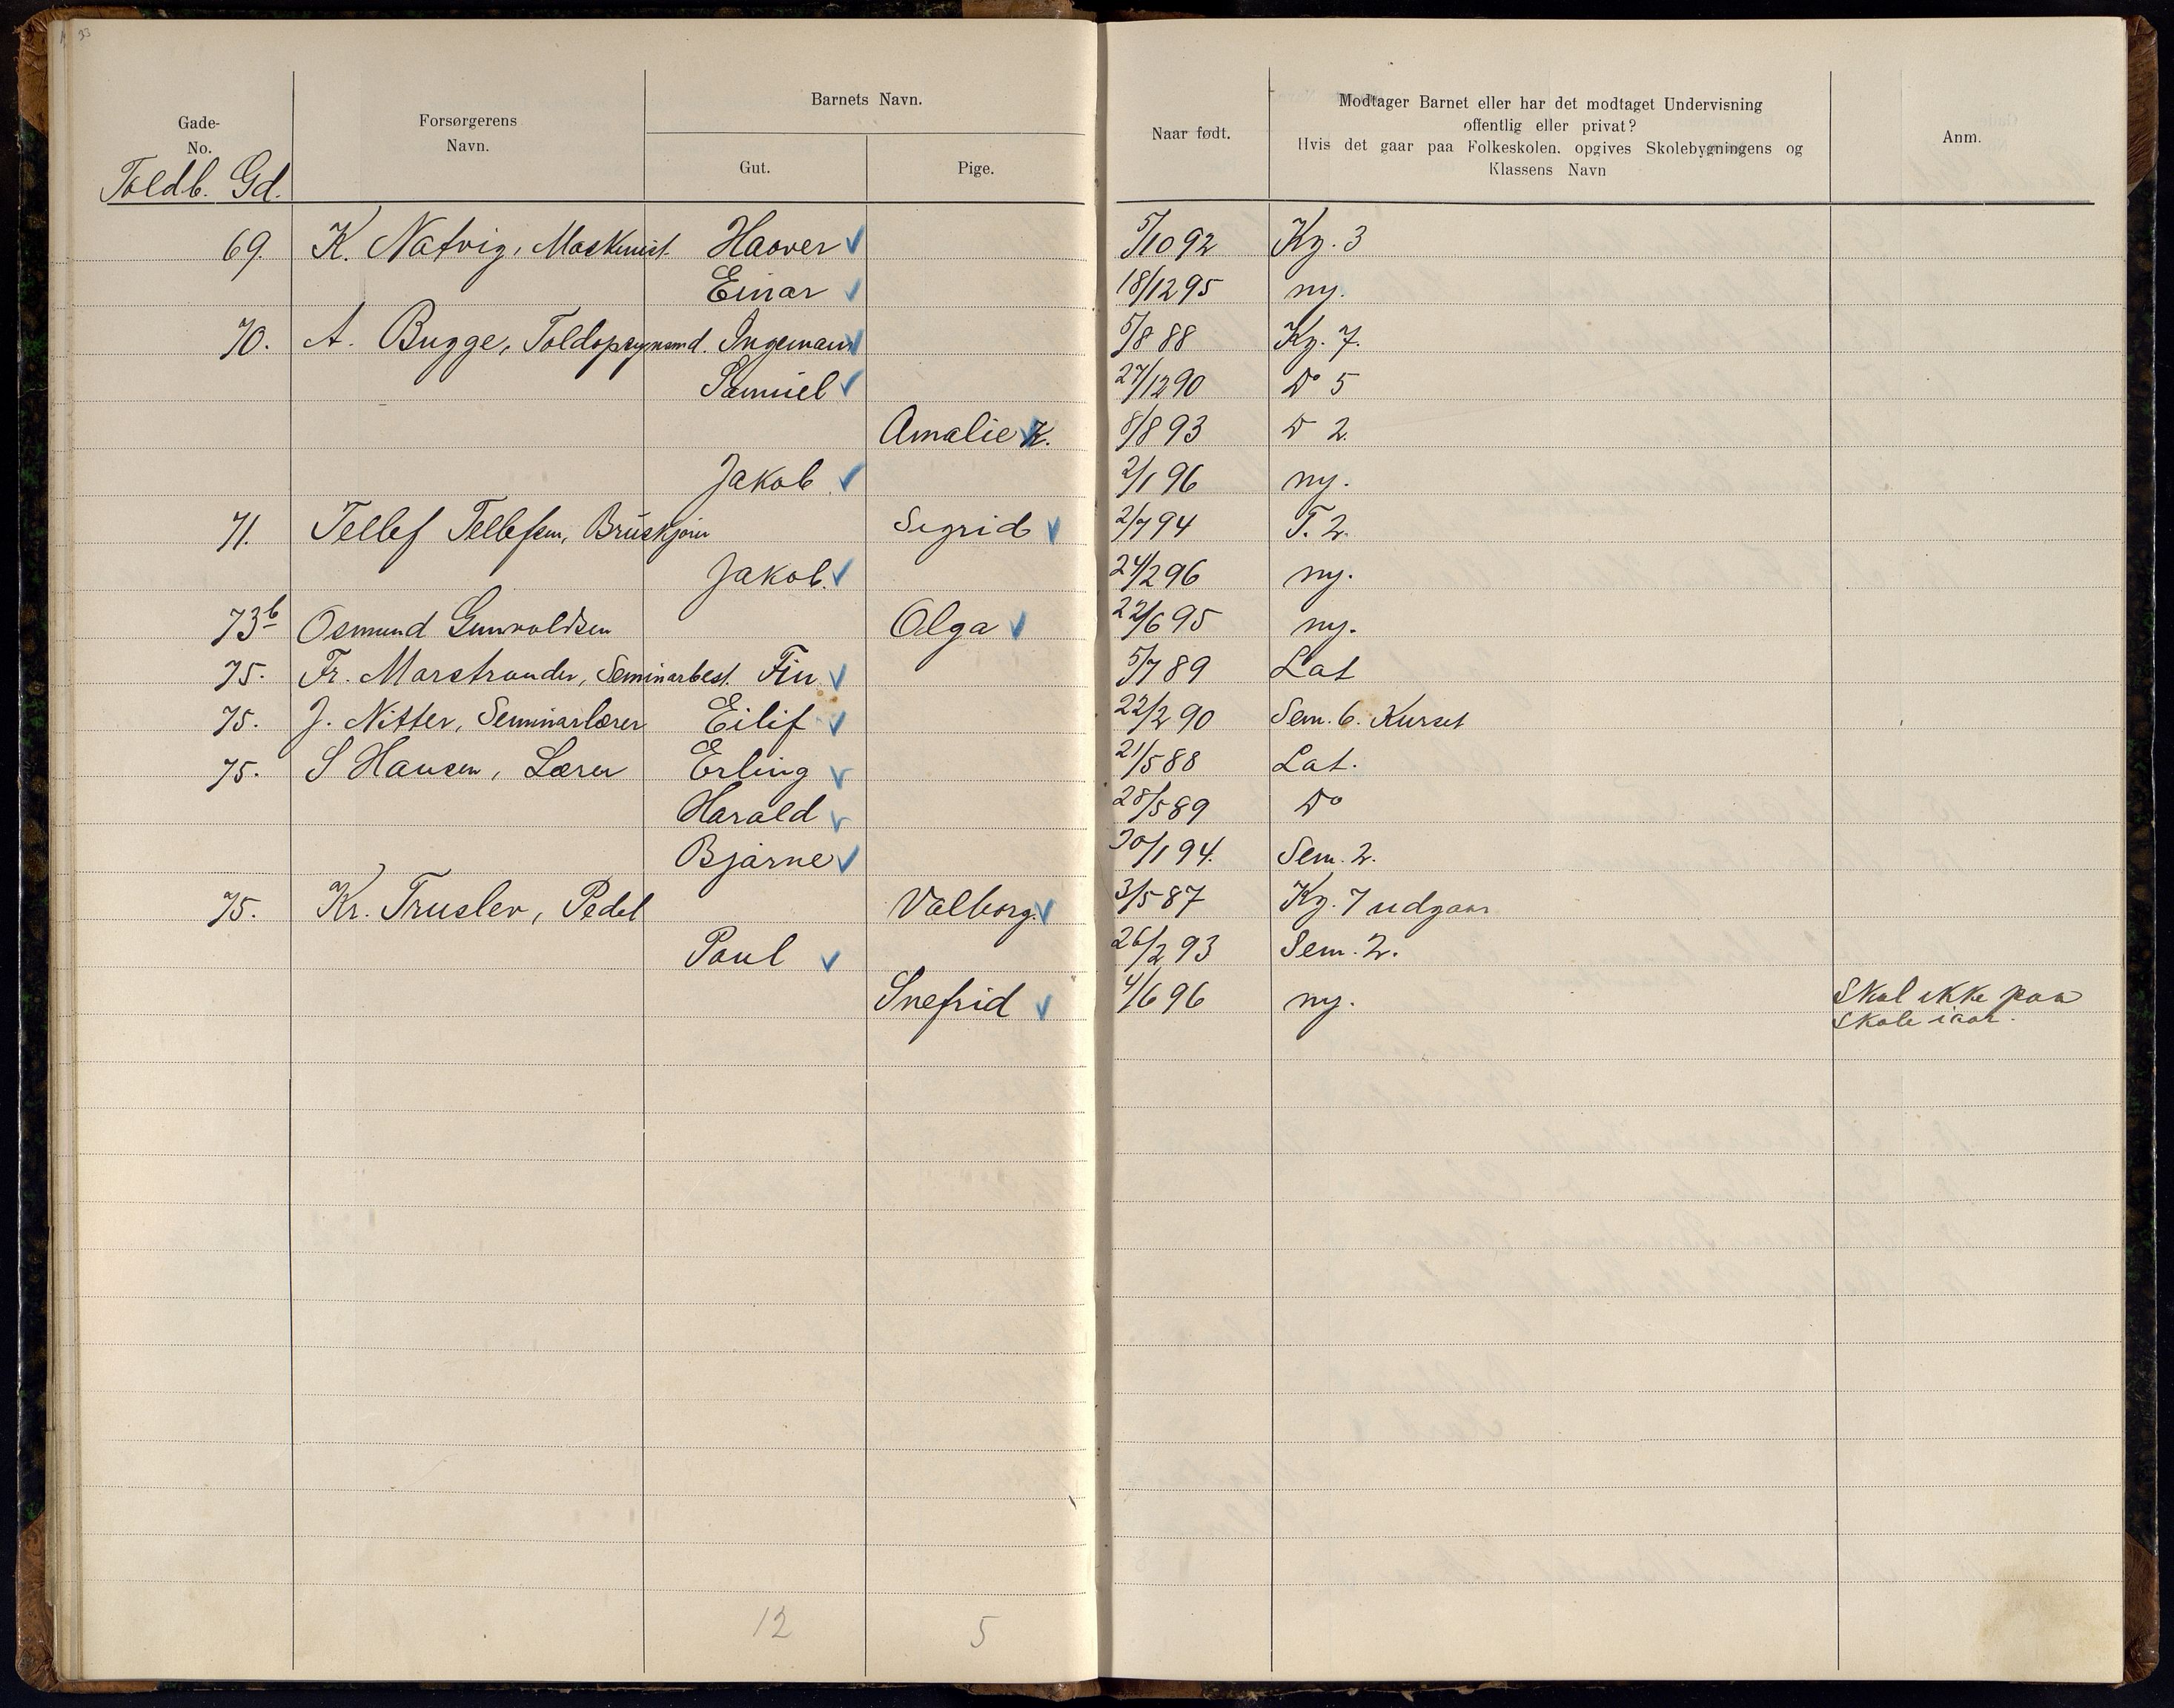 33
Gade-
No.
Forsørgerens
Navn.
Barnets Navn.
Gut.
Pige.
Naar født.
Modtager Barnet eller har det modtaget Undervisning
offentlig eller privat?
Hvis det gaar paa Folkeskolen. opgives Skolebygningens og
Klassens Navn
Anm.
Toldb. Gd.
69. K. Natvig, Maskinist. Haaver 5/10 92 Kg. 3
Einar 18/12 95 ny.
70. A. Bugge, Toldopsynsmd. Ingemann 5/8 88 Kg. 7.
Samuel 27/12 90 Do 5
Amalie K. 8/8 93 D 2.
Jakob 2/1 96 ny.
71. Tellef Tellefsen, Sigrid 2/7 94 T. 2.
Jakob. 24/2 96 ny.
73b Osmund Gunvoldsen Olga 22/6 95 ny.
75. Fr. Marstrander, Seminarbest. Fin 5/7 89 Lat
75. J. Nitter, Seminarlærer Eilif 22/2 90 Sem. 6. Kurset
75. S Hansen, Lærer Erling 21/5 88 Lat.
Harald 28/5 89 Do
Bjarne 30/1 94. Sem. 2.
75. Kr. Truslev, Pedel Valborg. 3/5 87 Kg. 7 udgaar
Poul 26/2 93 Sem. 2.
Snefrid 4/6 96 ny. Skal ikke paa
Skole iaar.
12 5